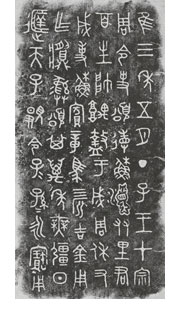 隹三年五月丁巳王才宗
周令史頌省穌友里君
百生帥堣盩于成周休又
成事穌賓章馬四匹吉金用
乍䵼彝頌其萬年無疆日
揚天子覭令子子孫孫永寶用